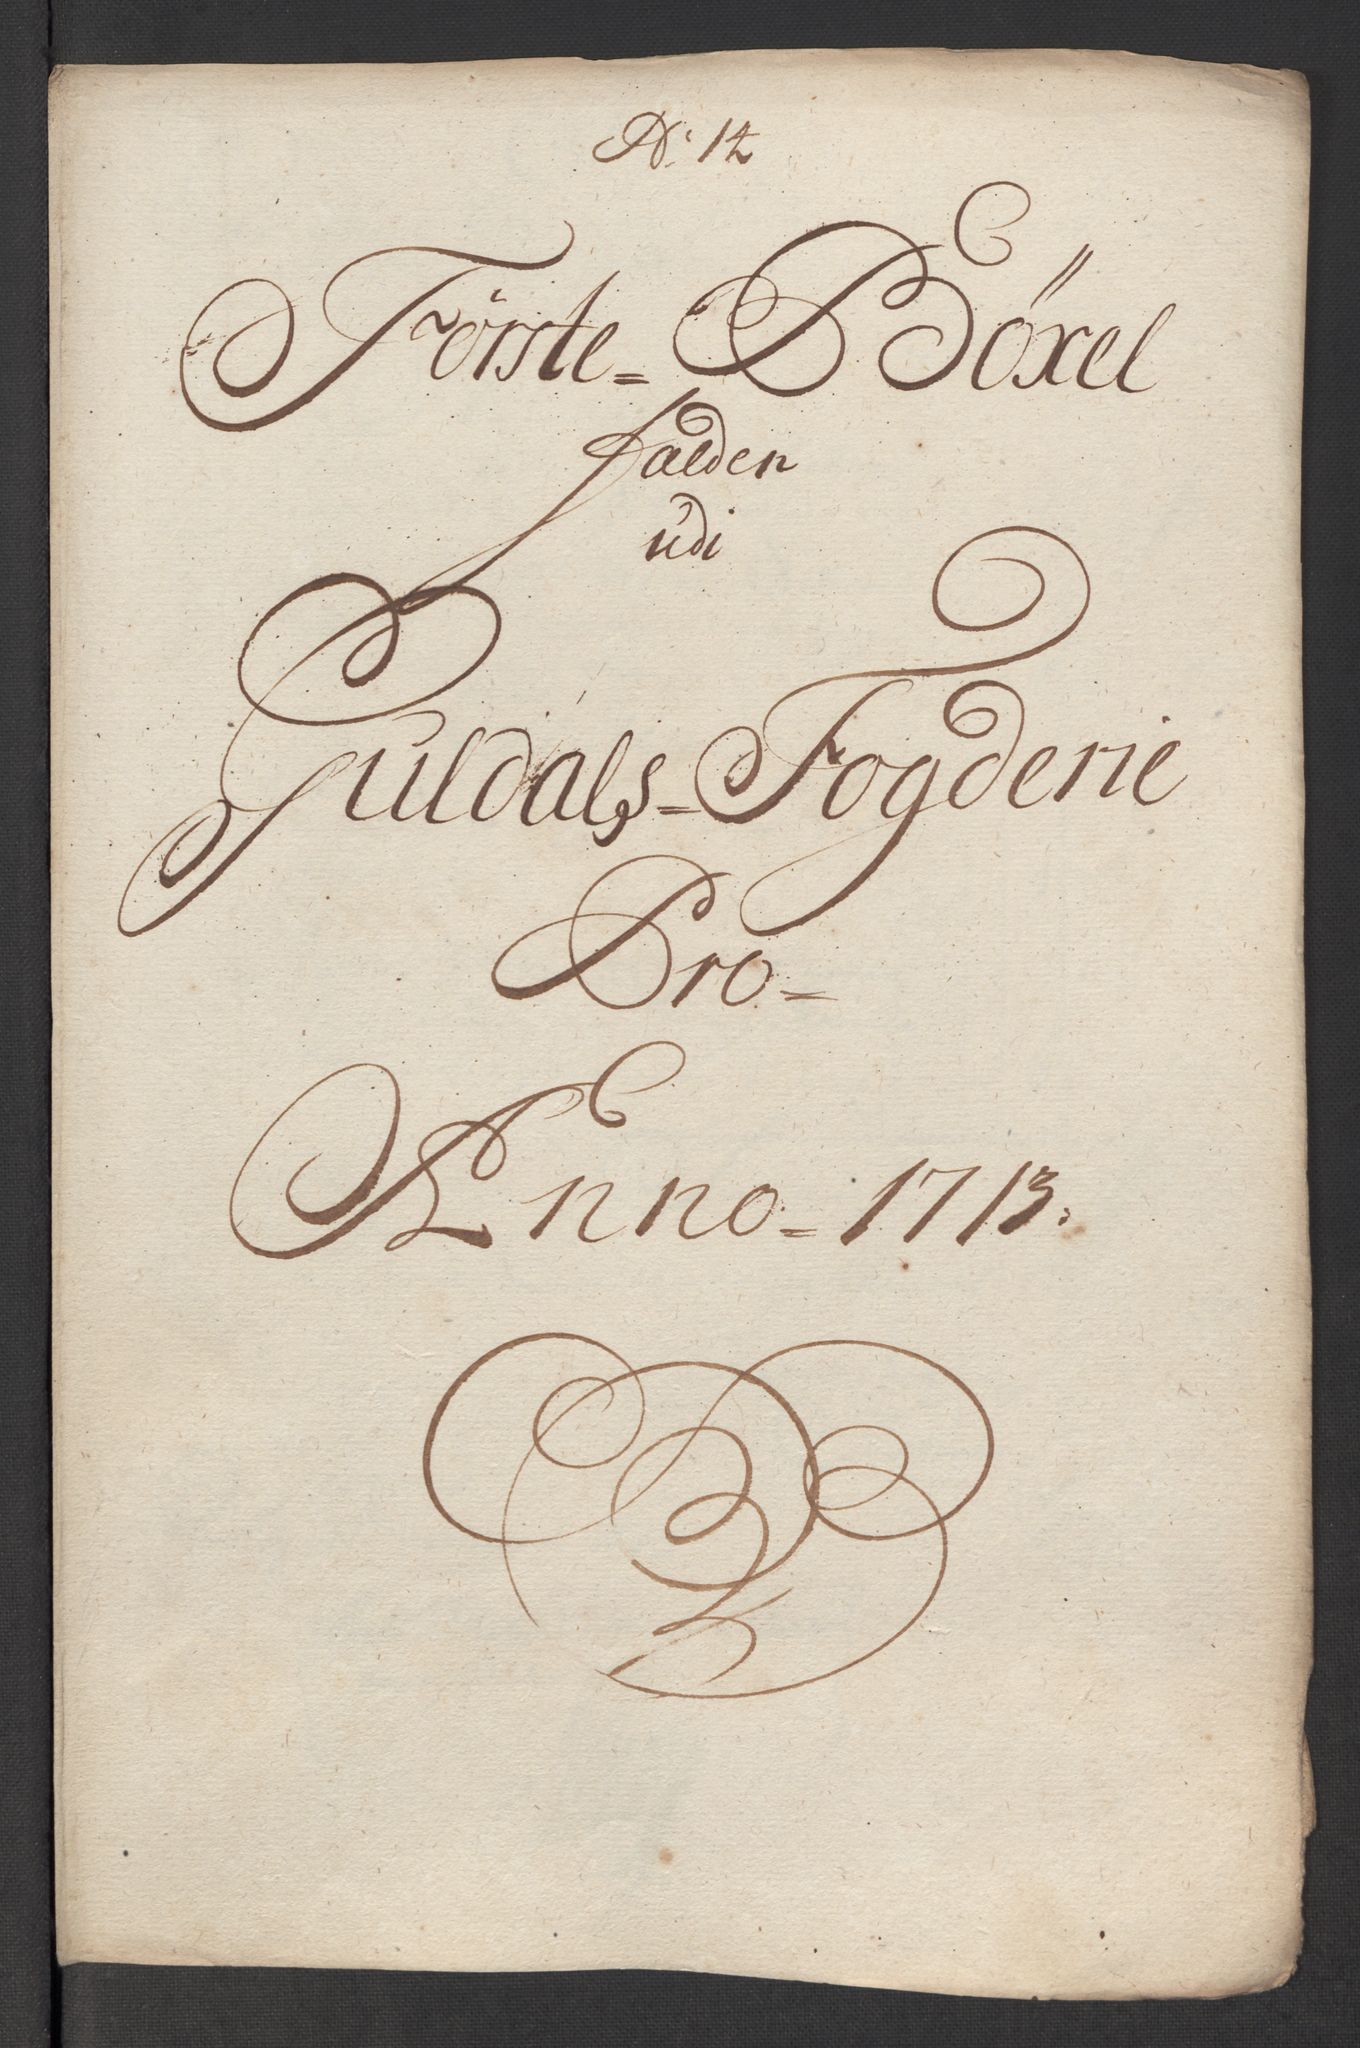 No: 14
Første= Böxel
falden
udi
Guldals= Fogderie
Pro=
Anno= 1713.